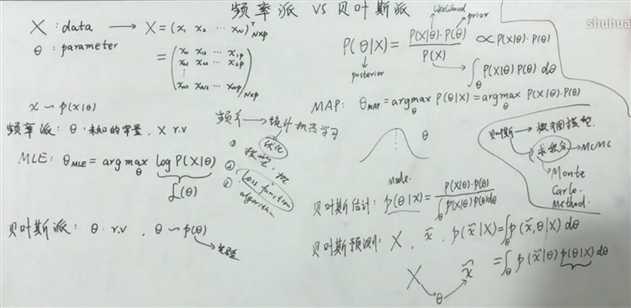 频率派 VS 贝叶斯派
shuhua
X : data → X = (x₁ x₂ ... x_N)ᵀ_{N×p}
θ : parameter
= (x₁₁ x₁₂ ... x₁p
x₂₁ x₂₂ ... x₂p
⋮
x_N1 x_N2 ... x_Np)_{N×p}
x ~ p(x|θ)
频率派: θ 未知的常量, X r.v
MLE: θ_MLE = arg max_θ log P(X|θ)
L(θ)
贝叶斯派: θ r.v, θ ~ p(θ)
→ 先验
频率 → 统计机器学习
优化
① 模型
② Loss function
③ algorithm
likelihood
prior
P(θ|X) = P(X|θ)·P(θ) / P(X) ∝ P(X|θ)·P(θ)
posterior
∫_θ P(X|θ) P(θ) dθ
MAP: θ_MAP = argmax_θ P(θ|X) = argmax_θ P(X|θ)·P(θ)
θ
mode
贝叶斯估计: p(θ|X) = P(X|θ)·P(θ) / ∫_θ P(X|θ) P(θ) dθ
贝叶斯预测: X, x̃, p(x̃|X) = ∫_θ p(x̃, θ|X) dθ
X θ x̃
= ∫_θ p(x̃|θ) p(θ|X) dθ
贝叶斯 → 概率图模型
求积分 → MCMC
Monte
Carlo
Method